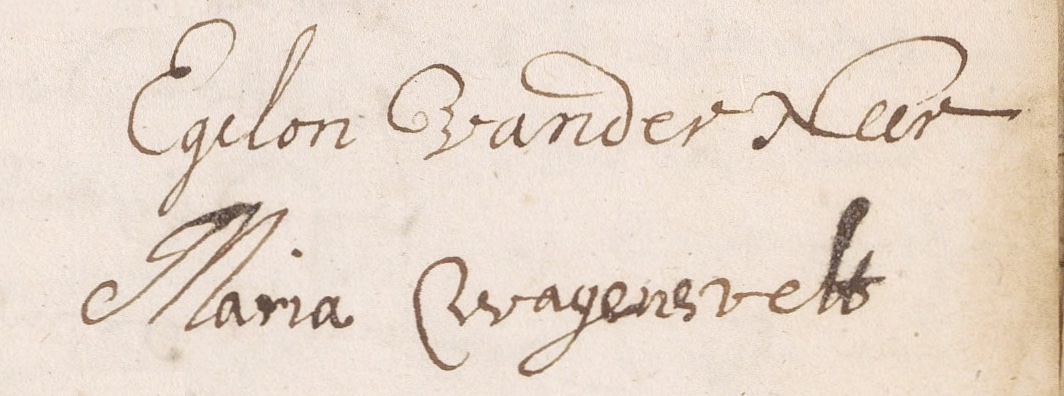 Egelon vander Neer
Maria wagensvelt